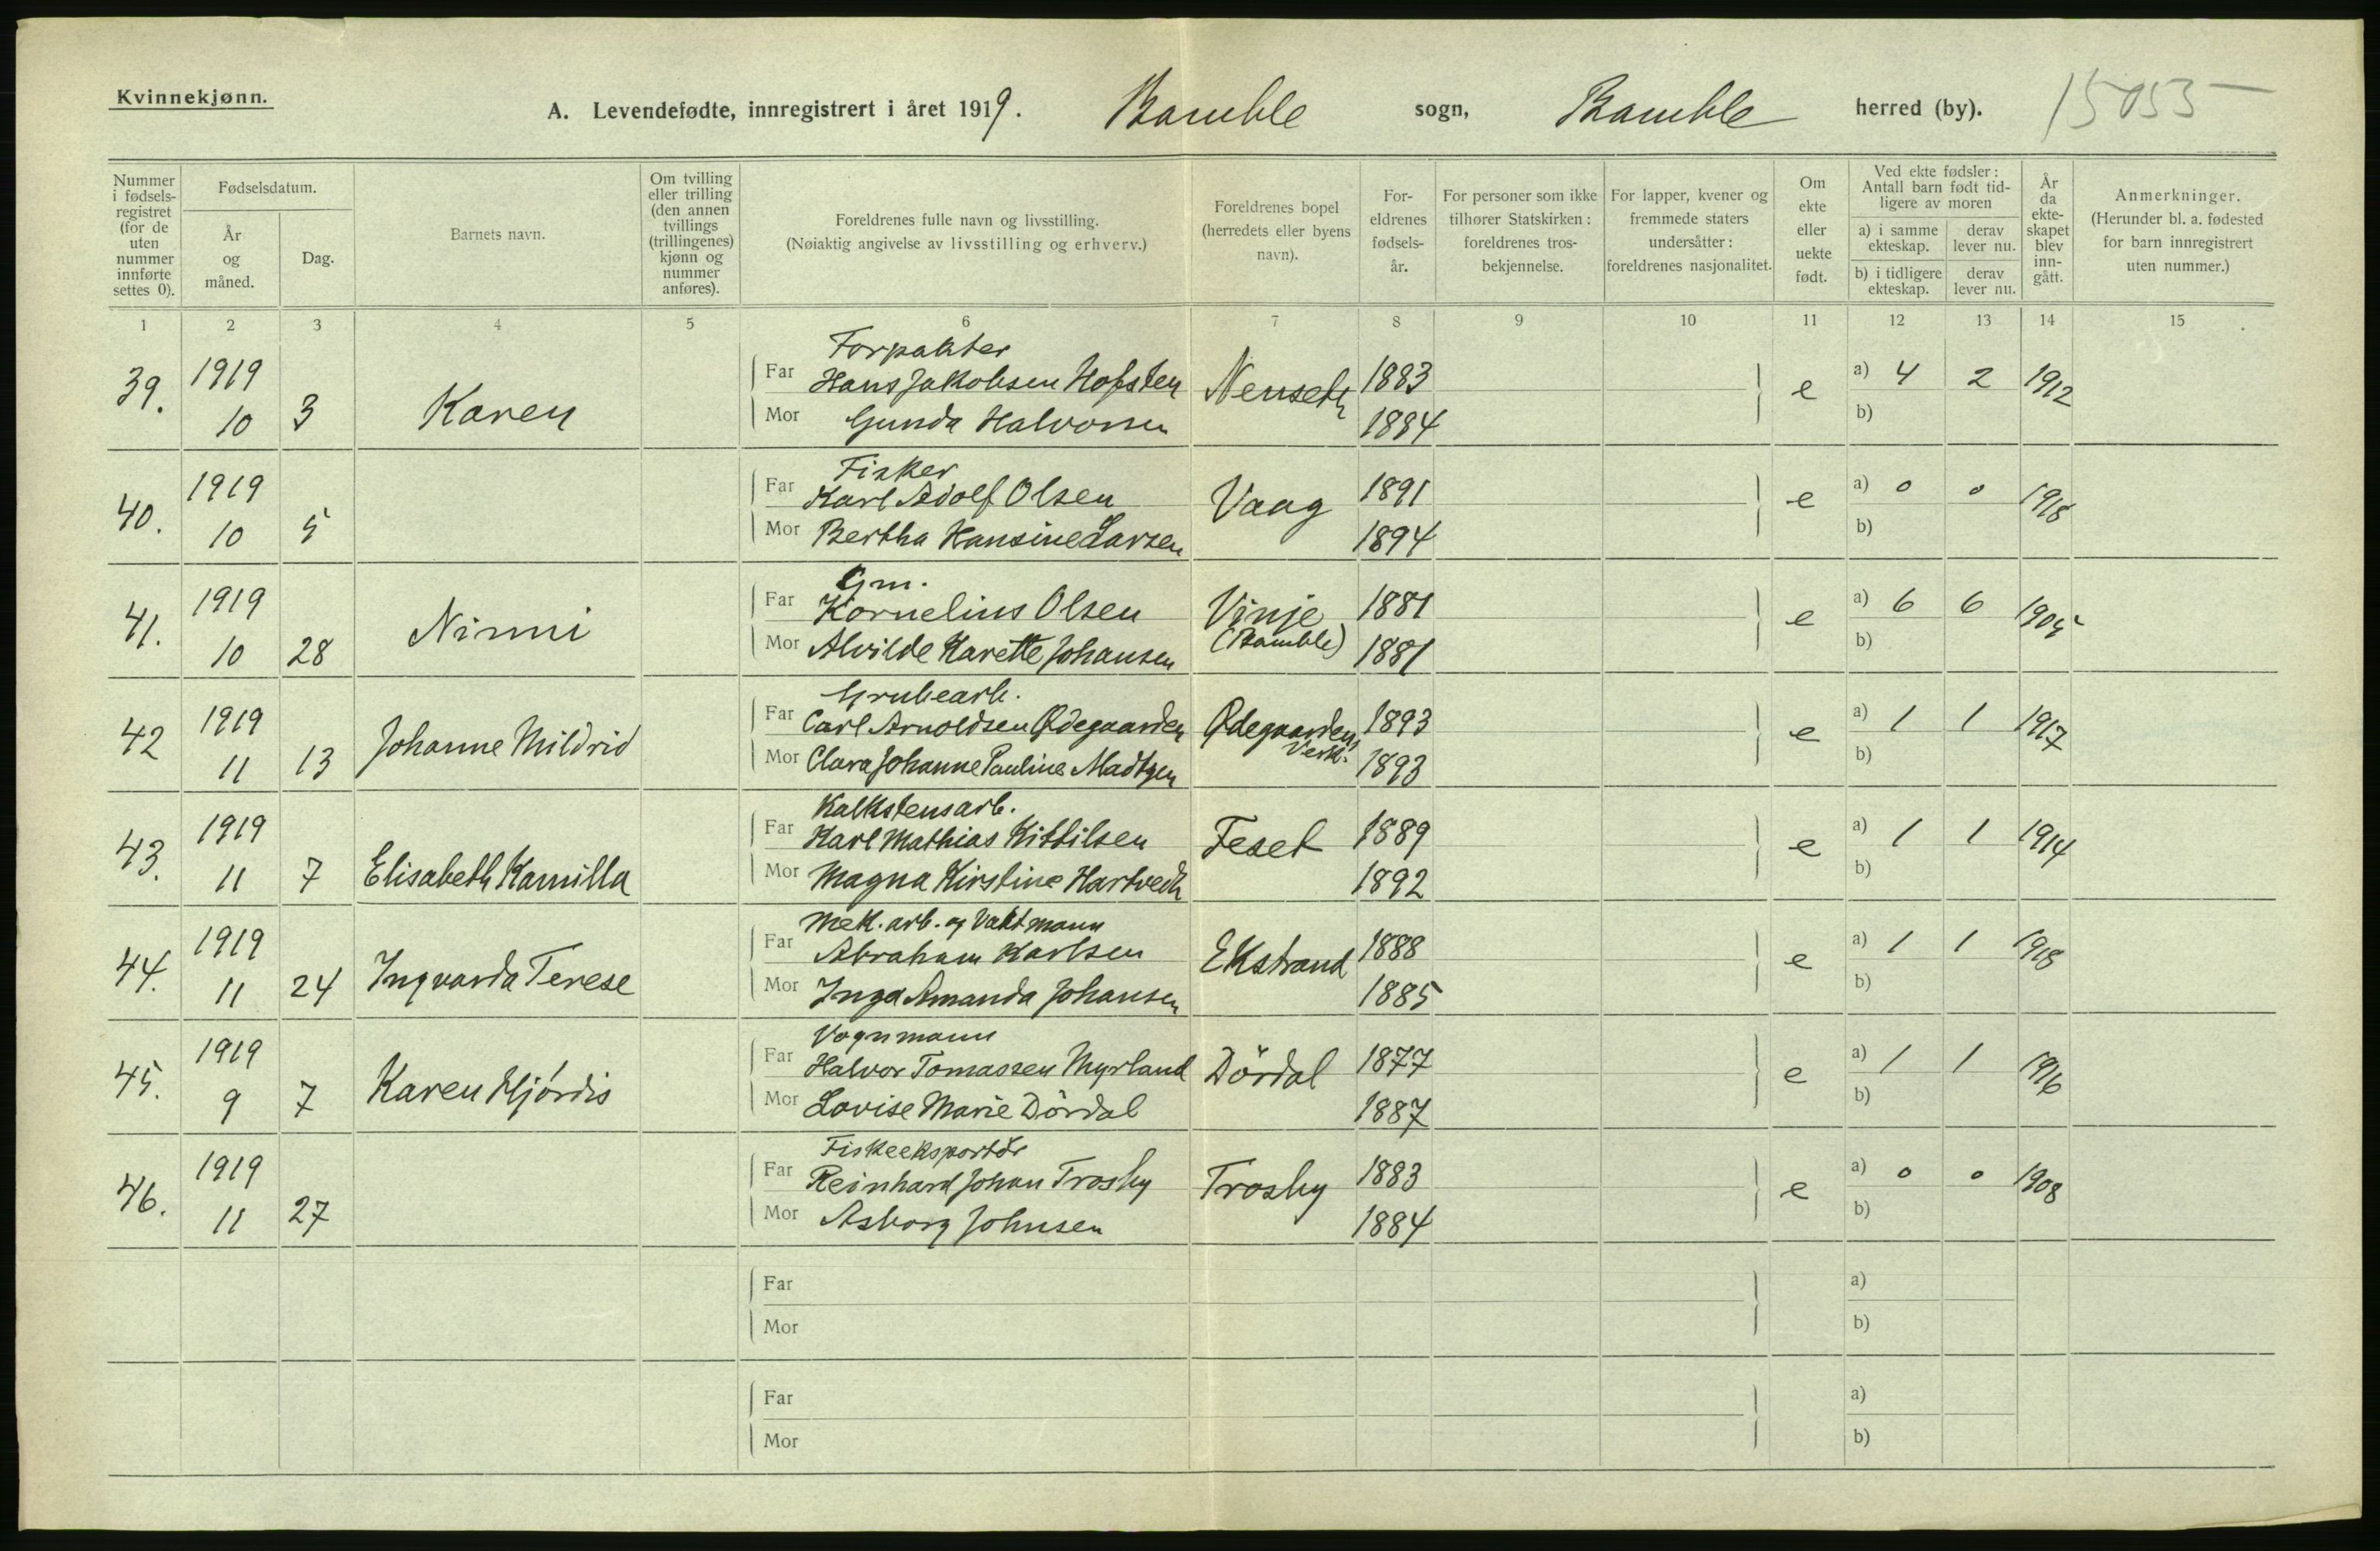 Kvinnekjønn.
A. Levendefødte, innregistrert i året 1919. Bamble sogn, Bamble herred (by). 15055
Nummer i fødselsregistret (for de uten nummer innførte settes 0).
Fødselsdatum.
År og måned.
Dag.
Barnets navn.
Om tvilling eller trilling (den annen tvillings (trillingenes) kjønn og nummer anføres).
Foreldrenes fulle navn og livsstilling.
(Nøiaktig angivelse av livsstilling og erhverv.)
Foreldrenes bopel (herredets eller byens navn).
Foreldrenes fødselsår.
For personer som ikke tilhører Statskirken: foreldrenes trosbekjennelse.
For lapper, kvener og fremmede staters undersåtter: foreldrenes nasjonalitet.
Om ekte eller uekte født.
Ved ekte fødsler: Antall barn født tidligere av moren
a) i samme ekteskap.
derav lever nu.
b) i tidligere ekteskap.
derav lever nu.
År da ekteskapet blev inngått.
Anmerkninger.
(Herunder bl. a. fødested for barn innregistrert uten nummer.)
1 2 3 4 5 6 7 8 9 10 11 12 13 14 15
Forpakter
39. 1919 Far Hans Jakobsen Hofsten Nenseth 1883 e a) 4 2 1912
10 3 Karen Mor Gunda Halvorsen 1884 b)
Fisker
40. 1919 Far Karl Adolf Olsen Vaag 1891 e a) 0 0 1918
10 5 Mor Bertha Hansine Larsen 1894 b)
Gm.
41. 1919 Ninni Far Kornelius Olsen Vinje 1881 e a) 6 6 1905
10 28 Mor Alvilde Karette Johansen (Bamble) 1881 b)
Grubearb.
42 1919 Johanne Mildrid Far Carl Arnoldsen Ødegaarden Ødegaardens 1893 e a) 1 1 1917
11 13 Mor Clara Johanne Pauline Madtzen Verk. 1893 b)
Kalkstensarb.
43. 1919 Far Karl Mathias Kittilsen Feset 1889 e a) 1 1 1914
11 7 Elisabeth Kamilla Mor Magna Kirstine Hartvedt 1892 b)
Mek. arb. og Vaktmann
44. 1919 Far Abraham Karlsen Ekstrand 1888 e a) 1 1 1918
11 24 Ingvarda Terese Mor Inga Amanda Johansen 1885 b)
Vognmann
45. 1919 Far Halvor Tomassen Myrland Dördal 1877 e a) 1 1 1916
9 7 Karen Hjördis Mor Lovise Marie Dördal 1887 b)
Fiskeeksportör
46. 1919 Far Reinhard Johan Trosby Trosby 1883 e a) 0 0 1908
11 27 Mor Asborg Johnsen 1884 b)
Far a)
Mor b)
Far a)
Mor b)